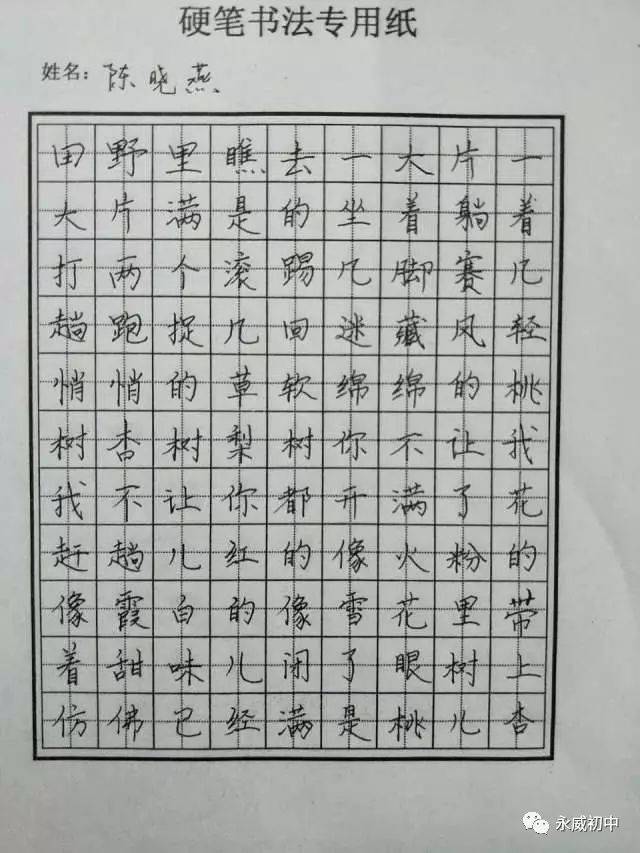 硬笔书法专用纸
姓名：陈晓燕
田野里瞧去一大片一
大片满是的坐着躺着
打两个滚踢几脚赛几
趟跑捉几回迷藏风轻
悄悄的草软绵绵的桃
树杏树梨树你不让我
我不让你都开满了花
赶趟儿红的像火粉的
像霞白的像雪花里带
着甜味儿闭了眼树上
仿佛已经满是桃儿杏
永威初中